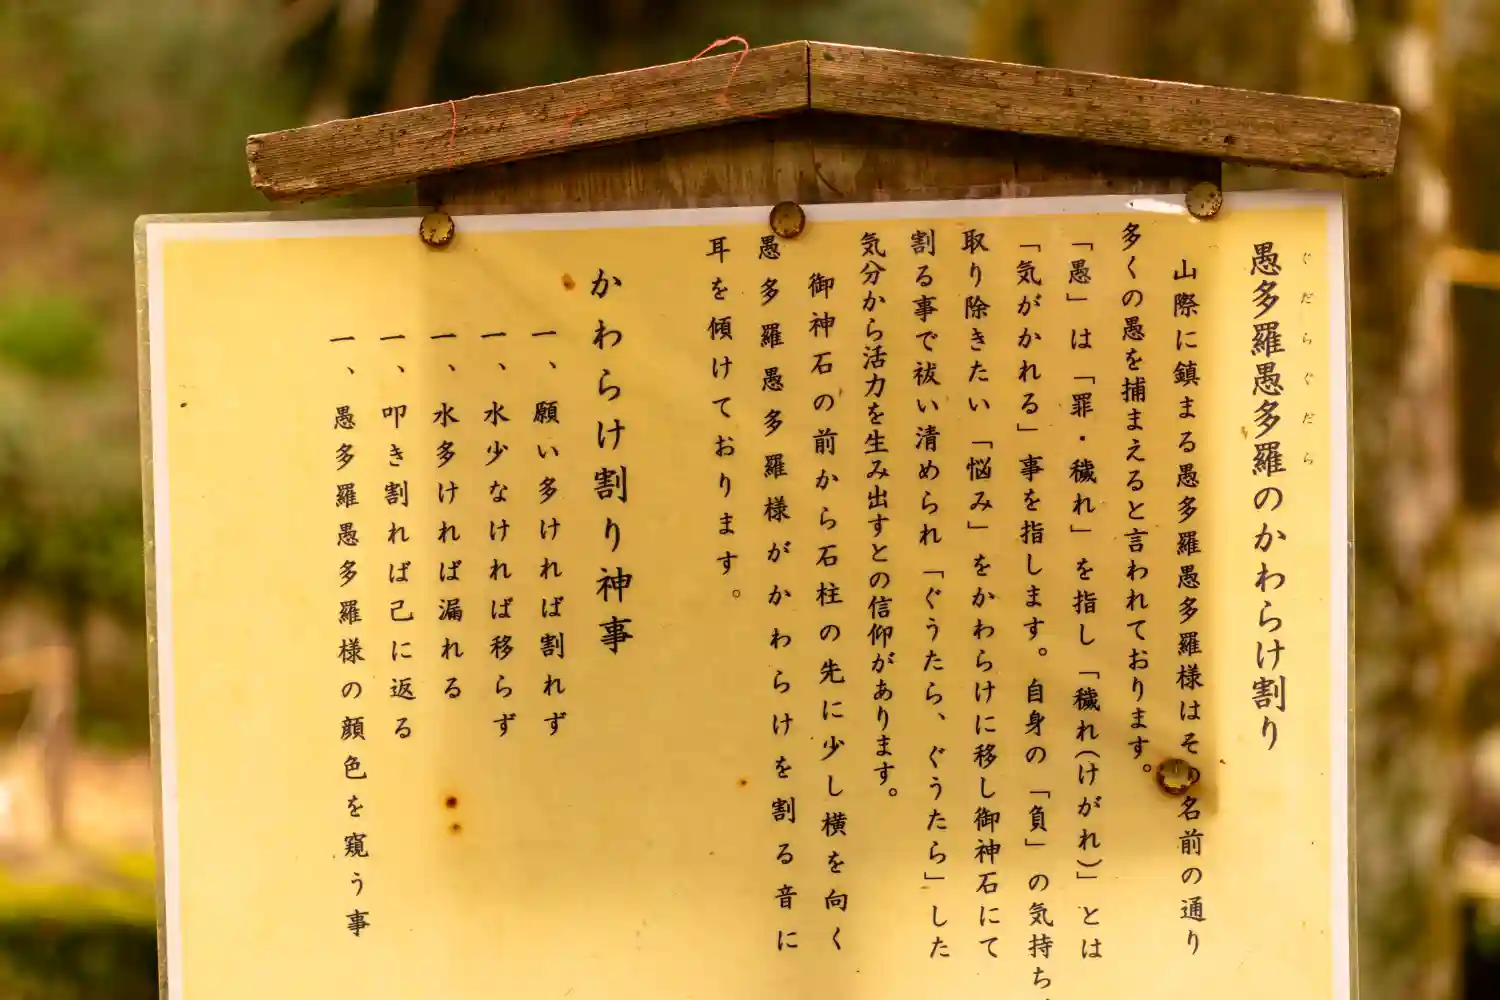 愚多羅愚多羅のかわらけ割り
ぐだらぐだら
山際に鎮まる愚多羅愚多羅様はその名前の通り
多くの愚を捕まえると言われております。
「愚」は「罪・穢れ」を指し「穢れ(けがれ)」とは
「気がかれる」事を指します。自身の「負」の気持ち、
取り除きたい「悩み」をかわらけに移し御神石にて
割る事で祓い清められ「ぐうたら、ぐうたら」した
気分から活力を生み出すとの信仰があります。
御神石の前から石柱の先に少し横を向く
愚多羅愚多羅様がかわらけを割る音に
耳を傾けております。
かわらけ割り神事
一、願い多ければ割れず
一、水少なければ移らず
一、水多ければ漏れる
一、叩き割れば己に返る
一、愚多羅愚多羅様の顔色を窺う事